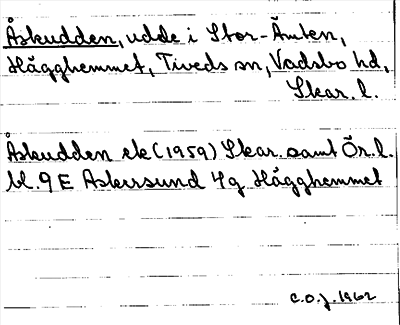 Åskudden, udde i Stor-Ämten,
Hägghemmet, Tiveds sn, Vadsbo hd,
Skar. l.
Åskudden ek (1959) Skar. samt Ör. l.
bl. 9 E Askersund 4g Hägghemmet
C.O.J. 1962